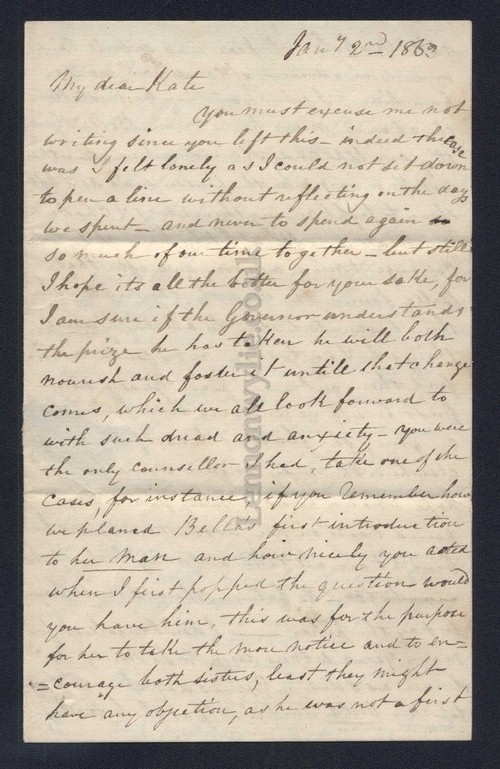 Jany 2nd 1863
My dear Kate
You must excuse me not
writing since you left this - indeed the case
was I felt lonely as I could not sit down
to pen a line without reflecting on the days
we spent - and never to spend again
so much of our time together - but still
I hope its all the better for your sake, for
I am sure if the Governor understands
the prize he has taken he will both
nourish and foster it untill that change
comes, which we all look forward to
with such dread and anxiety - you were
the only counsellor I had, take one of the
cases, for instance, if you remember how
we planed Bella's first introduction
to her man and how nicely you acted
when I first popped the question would
you have him, this was for the purpose
for her to take the more notice and to en=
=courage both sisters, least they might
have any objection, as he was not a first